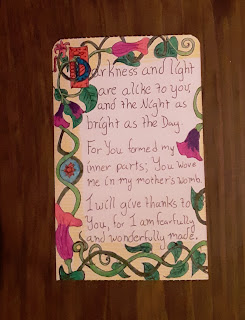 Darkness and light
are alike to you,
and the Night as
bright as the Day.
For You formed my
inner parts; You wove
me in my mother's womb.
I will give thanks to
You, for I am fearfully
and wonderfully made.